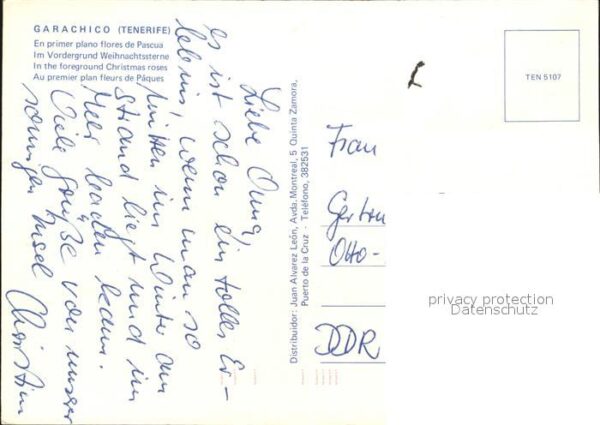 GARACHICO (TENERIFE)
En primer plano flores de Pascua
Im Vordergrund Weihnachtssterne
In the foreground Christmas roses
Au premier plan fleurs de Pâques
Liebe Oma!
es ist schon ein tolles Er-
lebnis, wenn man so
mitten im Winter am
Strand liegt und im
Meer baden kann.
Viele Grüße von unser
sonnigen Insel Christin
Distribuidor: Juan Alvarez León, Avda. Montreal, 5 Quinta Zamora,
Puerto de la Cruz - Teléfono, 382531
TEN 5107
Frau
Gertru
Otto-
DDR
privacy protection
Datenschutz